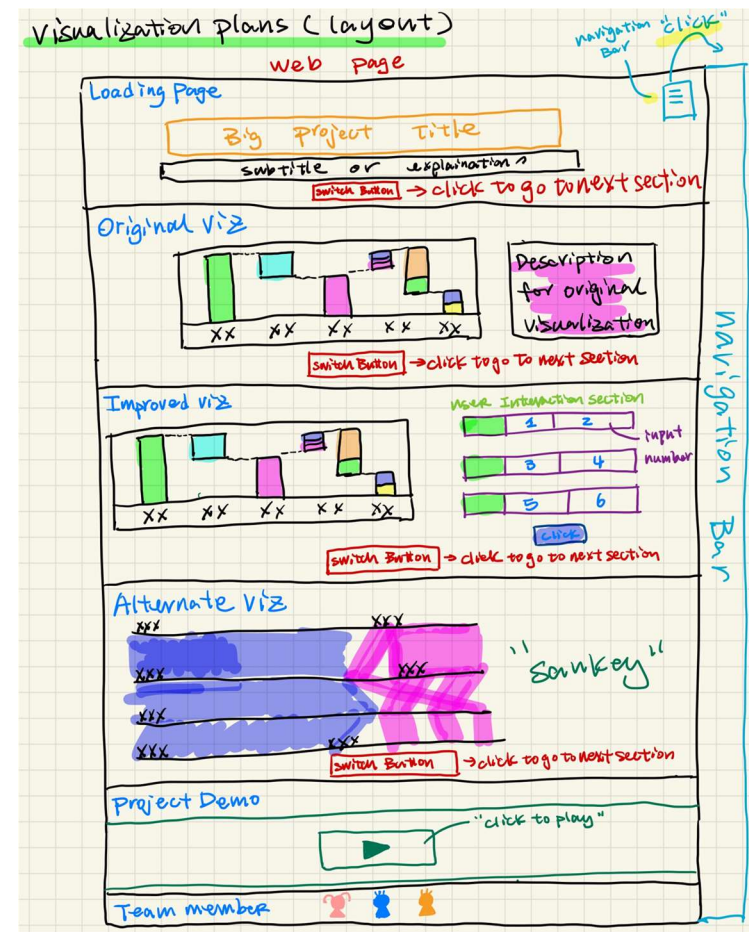 Visualization plans (layout)
navigation "click"
Bar
web page
Loading Page
Big Project Title
subtitle or explaination
switch Button → click to go to next section
Original Viz
Description
for original
visualization
XX XX XX XX XX
switch Button → click to go to next section
Improved viz
user Interaction section
1 2
input
number
3 4
5 6
click
XX XX XX XX XX
switch Button → click to go to next section
Alternate viz
XXX XXX
"sankey"
XXX XXX
XXX
XXX XXX
switch Button → click to go to next section
Project Demo
"click to play"
Team member
navigation Bar